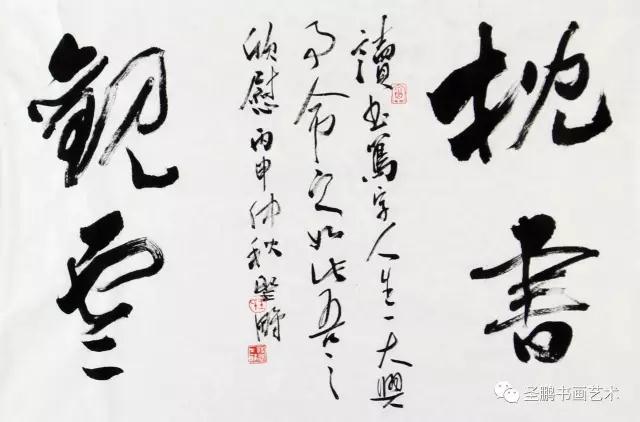 枕書
讀書寫字人生一大興
事命之如此吾之
欣慰丙申仲秋聖鵬
觀雲
圣鹏书画艺术